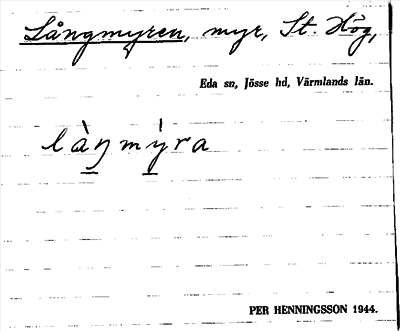 Långmyren, myr, St. Hög,
Eda sn, Jösse hd, Värmlands län.
làŋmýra
PER HENNINGSSON 1944.